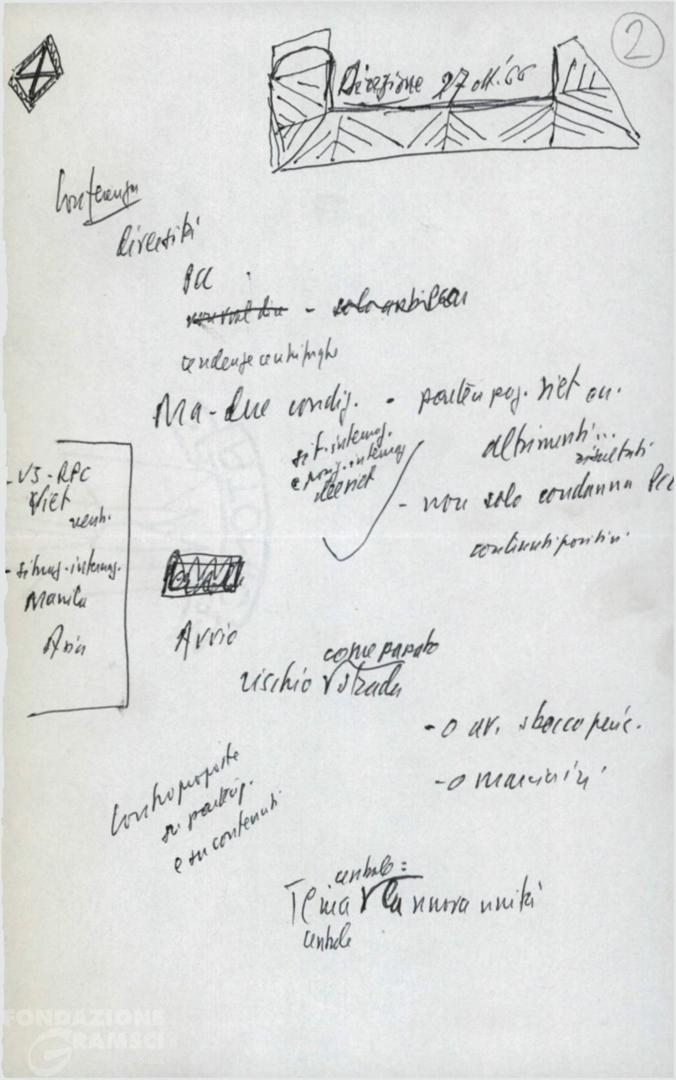 2
Direzione 27 ott. '66
Conferenza
diversità
PCC
non vuol dire - solo
tendenze centrifughe
Ma - due condiz. - partén. pos. Viet
sit. internaz.
e pos. internaz.
del Viet
altrimenti...
risultati
- non solo condanna PCC
contenuti positivi.
- US - RPC
Viet
- situaz. internaz.
Manila
Asia
Avvio
come papato
rischio strada
- o av. sbocco peric.
- o
Controproposte
su
e su contenuti
centrale:
Tema la nuova unità
centrale
FONDAZIONE
GRAMSCI